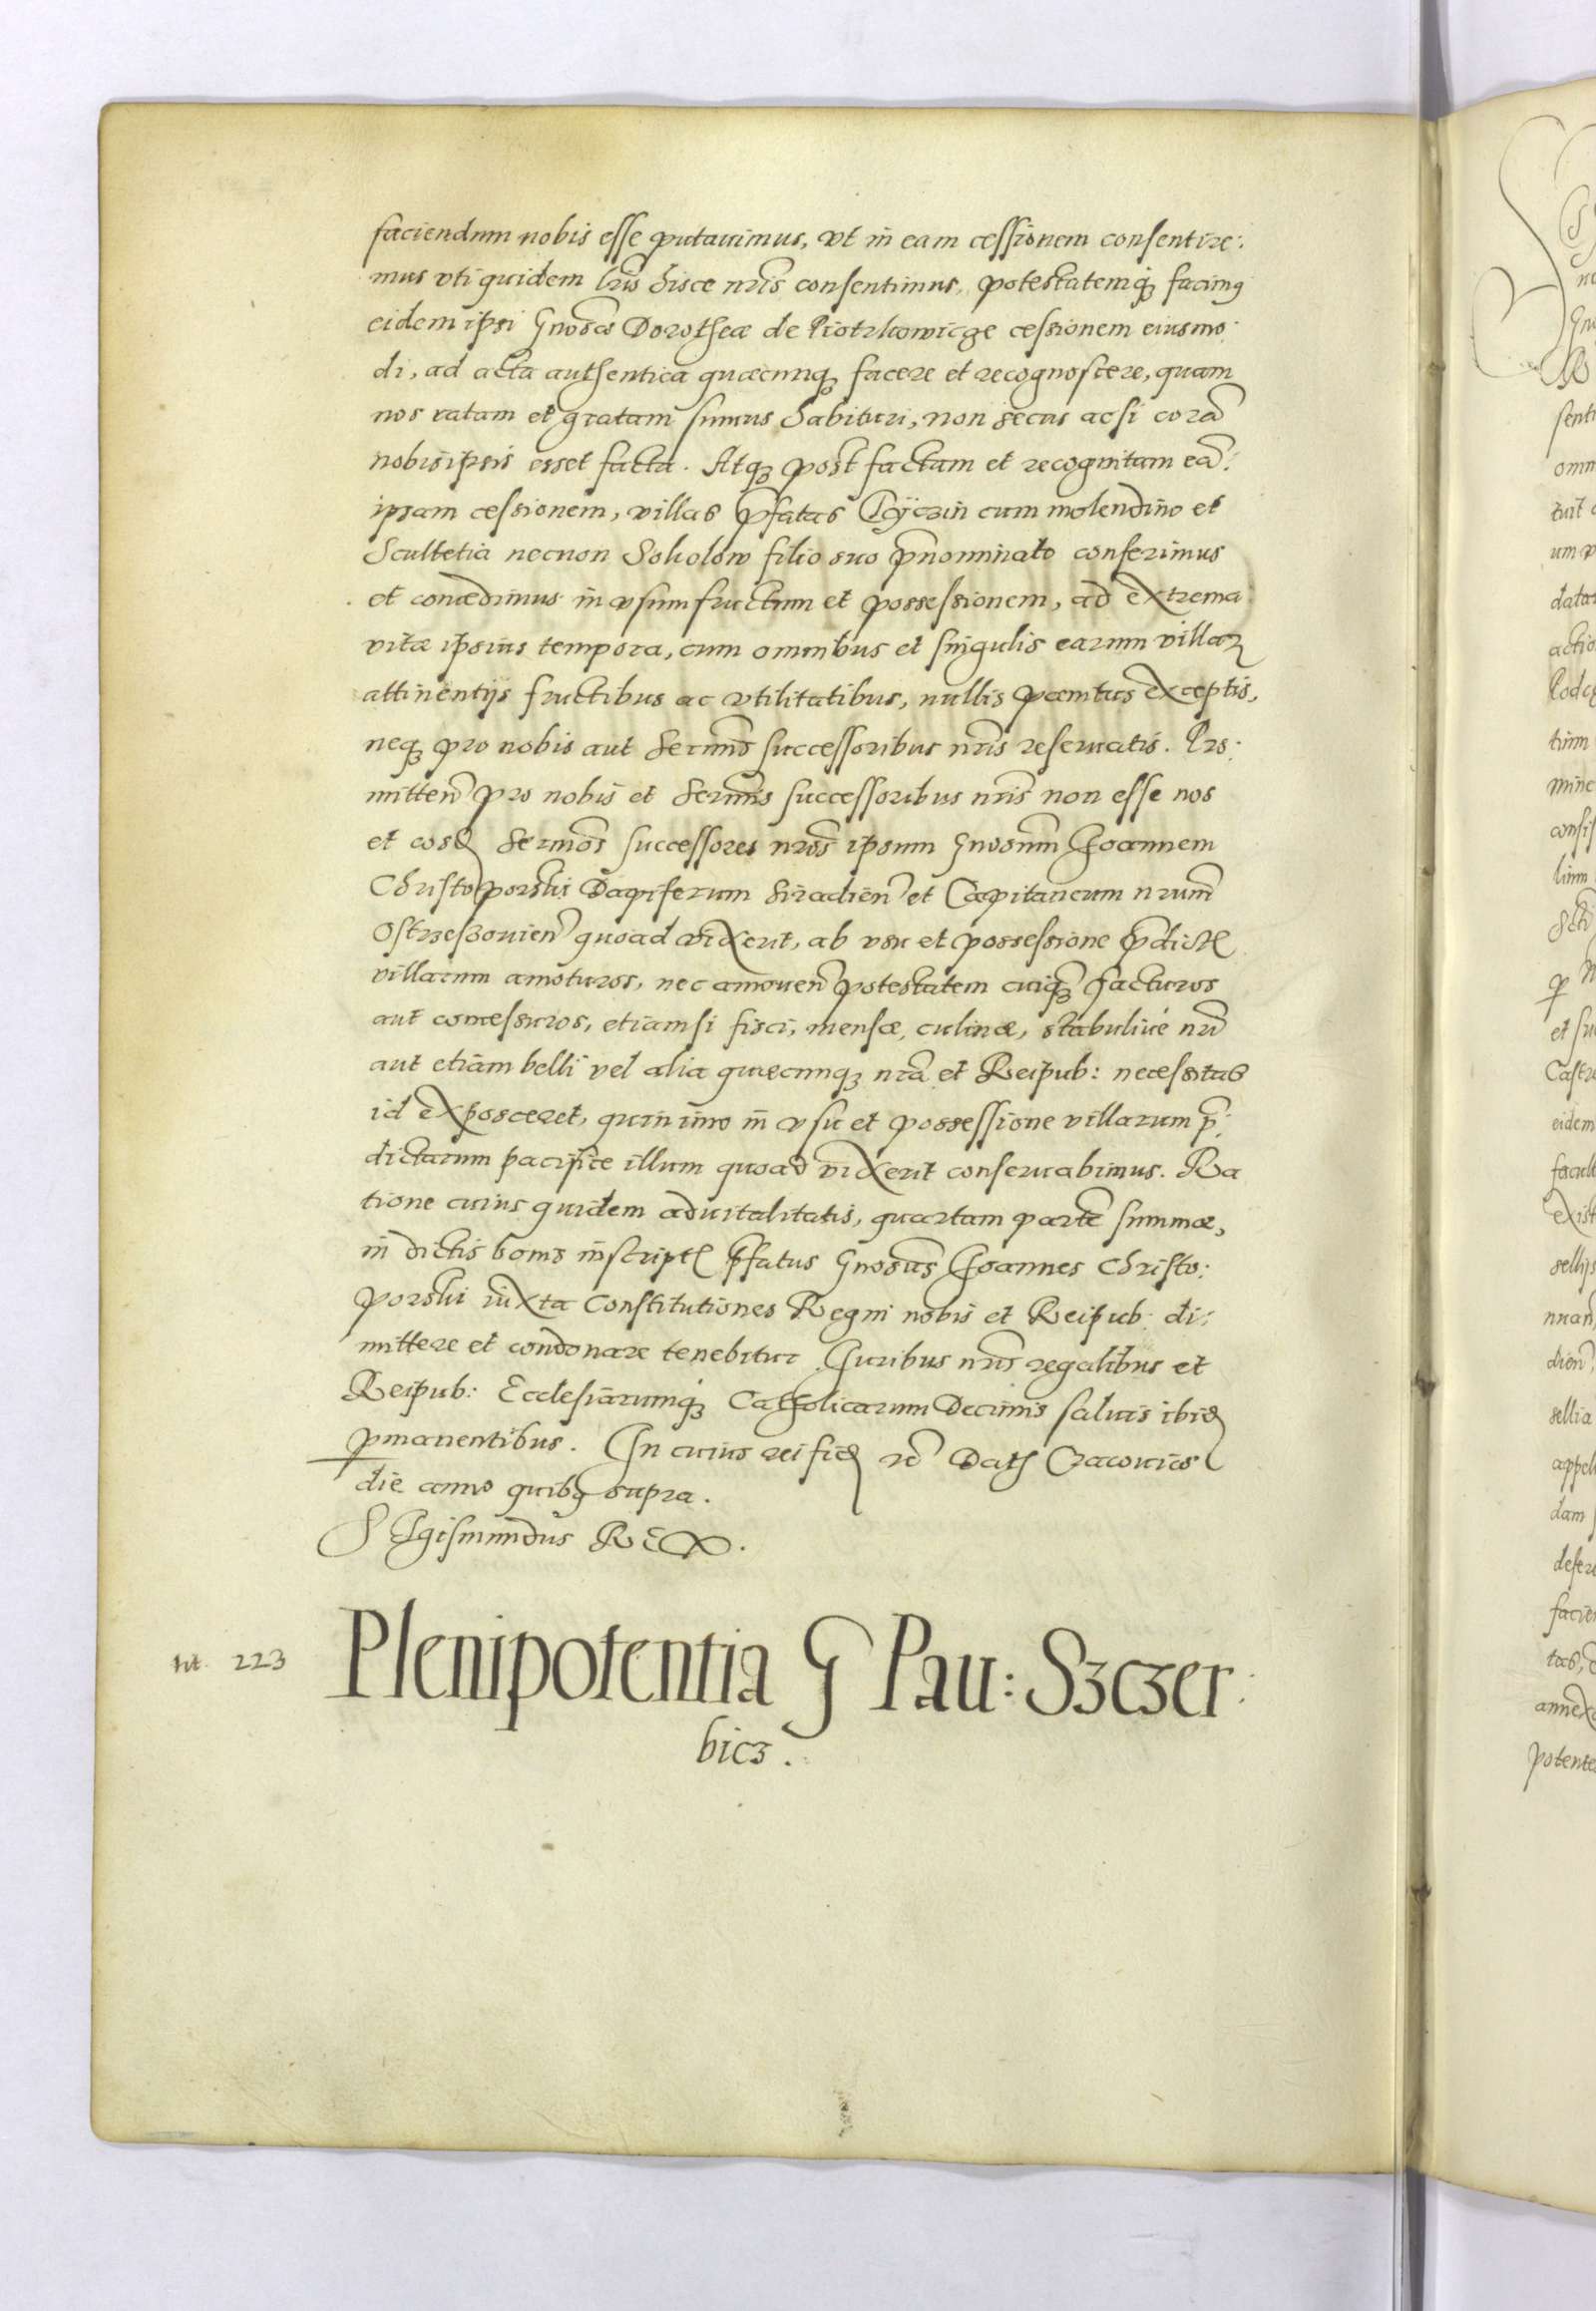 faciendum nobis esse putauimus, vt in eam cessionem consentire:
mus vti quidem lr̃is hisce nr̃is consentimus, potestatemq; facimꝰ
eidem ipsi Gnosæ Dorotheæ de Piotrkowicze cessionem eiusmo:
di, ad acta authentica quæcunq; facere et recognoscere, quam
nos ratam et gratam sumus habituri, non secus ac si corã
nobisipsis esset facta. Atq; post factam et recognitam eã:
ipsam cessionem, villas p̃fatas cum molendino et
Scultetia necnon Sokolow filio suo p̃nominato conferimus
et concedimus in vsumfructum et possessionem, ad extrema
vitæ ipsius tempora, cum omnibus et singulis earum villaꝝ
attinentijs fructibus ac vtilitatibus, nullis pœnitus exceptis,
neq; pro nobis aut Sermis̃ successoribus nr̃is reseruatis. Pro:
mitteñ pro nobis et Sermis̃ successoribus nr̃is non esse nos
et eosđ Sermos̃ successores nr̃os ipsum Gnosum̃ Joannem
Christoporski Dapiferum Siradieñ et Capitaneum nrum̃
Ostrzeszouieñ quoad vixerit, ab vsu et possessione p̃dictꝭ
villarum amoturos, nec amoueñ potestatem cuiq̃; facturos
aut concessuros, etiamsi fisci, mensæ, culinæ, stabuliue nr̃i
aut etiam belli vel alia quæcunq; nr̃a et Reipub: necessitas
id exposceret, quin imo in vsu et possessione villarum p̃:
dictarum pacifice illum quoad vixerit conseruabimus. Ra
tione cuius quidem aduitalitatis, quartam partẽ summæ,
in dictis bonis inscriptꝭ p̃fatus Gnosus̃ Joannes Christo:
porski iuxta Constitutiones Regni nobis et Reipub: di:
mittere et condonare tenebitur Juribus nr̃is regalibus et
Reipub: Ecclesiarumq; Catholicarum Decimis saluis ibiđ
ꝑmanentibus. In cuius rei fiđ rẽ Datꝭ Cracouiæ
die anno quibꝰ supra.
SIgismundus REX.
Plenipotentia G Pau: Szczer:
bicz.
223